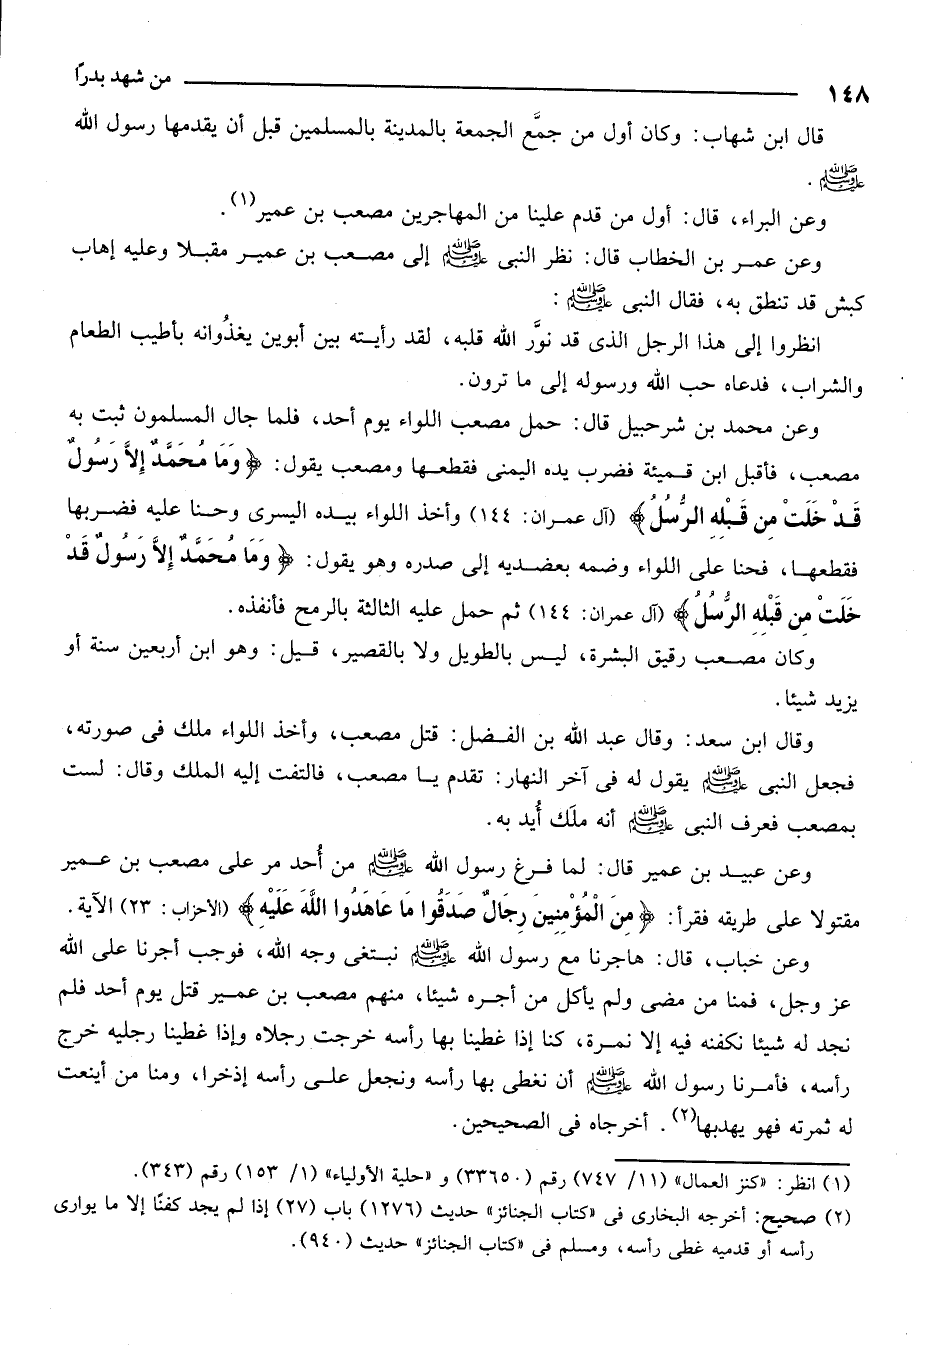 ١٤٨ من شهد بدرًا
قال ابن شهاب: وكان أول من جمَّع الجمعة بالمدينة بالمسلمين قبل أن يقدمها رسول الله
ﷺ .
وعن البراء، قال: أول من قدم علينا من المهاجرين مصعب بن عمير(١).
وعن عمر بن الخطاب قال: نظر النبى ﷺ إلى مصعب بن عمير مقبلا وعليه إهاب
كبش قد تنطق به، فقال النبى ﷺ :
انظروا إلى هذا الرجل الذى قد نورَّ الله قلبه، لقد رأيته بين أبوين يغذُوانه بأطيب الطعام
والشراب، فدعاه حب الله ورسوله إلى ما ترون.
وعن محمد بن شرحبيل قال: حمل مصعب اللواء يوم أحد، فلما جال المسلمون ثبت به
مصعب، فأقبل ابن قميئة فضرب يده اليمنى فقطعها ومصعب يقول: ﴿ وَمَا مُحَمَّدٌ إِلاَّ رَسُولٌ
قَدْ خَلَتْ مِن قَبْلِهِ الرُّسُلُ ﴾ (آل عمران: ١٤٤) وأخذ اللواء بيده اليسرى وحنا عليه فضربها
فقطعها، فحنا على اللواء وضمه بعضديه إلى صدره وهو يقول: ﴿ وَمَا مُحَمَّدٌ إِلاَّ رَسُولٌ قَدْ
خَلَتْ مِن قَبْلِهِ الرُّسُلُ ﴾ (آل عمران: ١٤٤) ثم حمل عليه الثالثة بالرمح فأنفذه.
وكان مصعب رقيق البشرة، ليس بالطويل ولا بالقصير، قيل: وهو ابن أربعين سنة أو
يزيد شيئا.
وقال ابن سعد: وقال عبد الله بن الفضل: قتل مصعب، وأخذ اللواء ملك فى صورته،
فجعل النبى ﷺ يقول له فى آخر النهار: تقدم يا مصعب، فالتفت إليه الملك وقال: لست
بمصعب فعرف النبى ﷺ أنه ملَك أُيد به.
وعن عبيد بن عمير قال: لما فرغ رسول الله ﷺ من أُحد مر على مصعب بن عمير
مقتولا على طريقه فقرأ: ﴿ مِنَ الْمُؤْمِنِينَ رِجَالٌ صَدَقُوا مَا عَاهَدُوا اللَّهَ عَلَيْهِ ﴾ (الأحزاب: ٢٣) الآية.
وعن خباب، قال: هاجرنا مع رسول الله ﷺ نبتغى وجه الله، فوجب أجرنا على الله
عز وجل، فمنا من مضى ولم يأكل من أجره شيئا، منهم مصعب بن عمير قتل يوم أحد فلم
نجد له شيئا نكفنه فيه إلا نمرة، كنا إذا غطينا بها رأسه خرجت رجلاه وإذا غطينا رجليه خرج
رأسه، فأمرنا رسول الله ﷺ أن نغطى بها رأسه ونجعل على رأسه إذخرا، ومنا من أينعت
له ثمرته فهو يهدبها(٢). أخرجاه فى الصحيحين.
(١) انظر: «كنز العمال» (١١/ ٧٤٧) رقم (٣٣٦٥٠) و «حلية الأولياء» (١/ ١٥٣) رقم (٣٤٣).
(٢) صحيح: أخرجه البخارى فى «كتاب الجنائز» حديث (١٢٧٦) باب (٢٧) إذا لم يجد كفنًا إلا ما يوارى
رأسه أو قدميه غطى رأسه، ومسلم فى «كتاب الجنائز» حديث (٩٤٠).